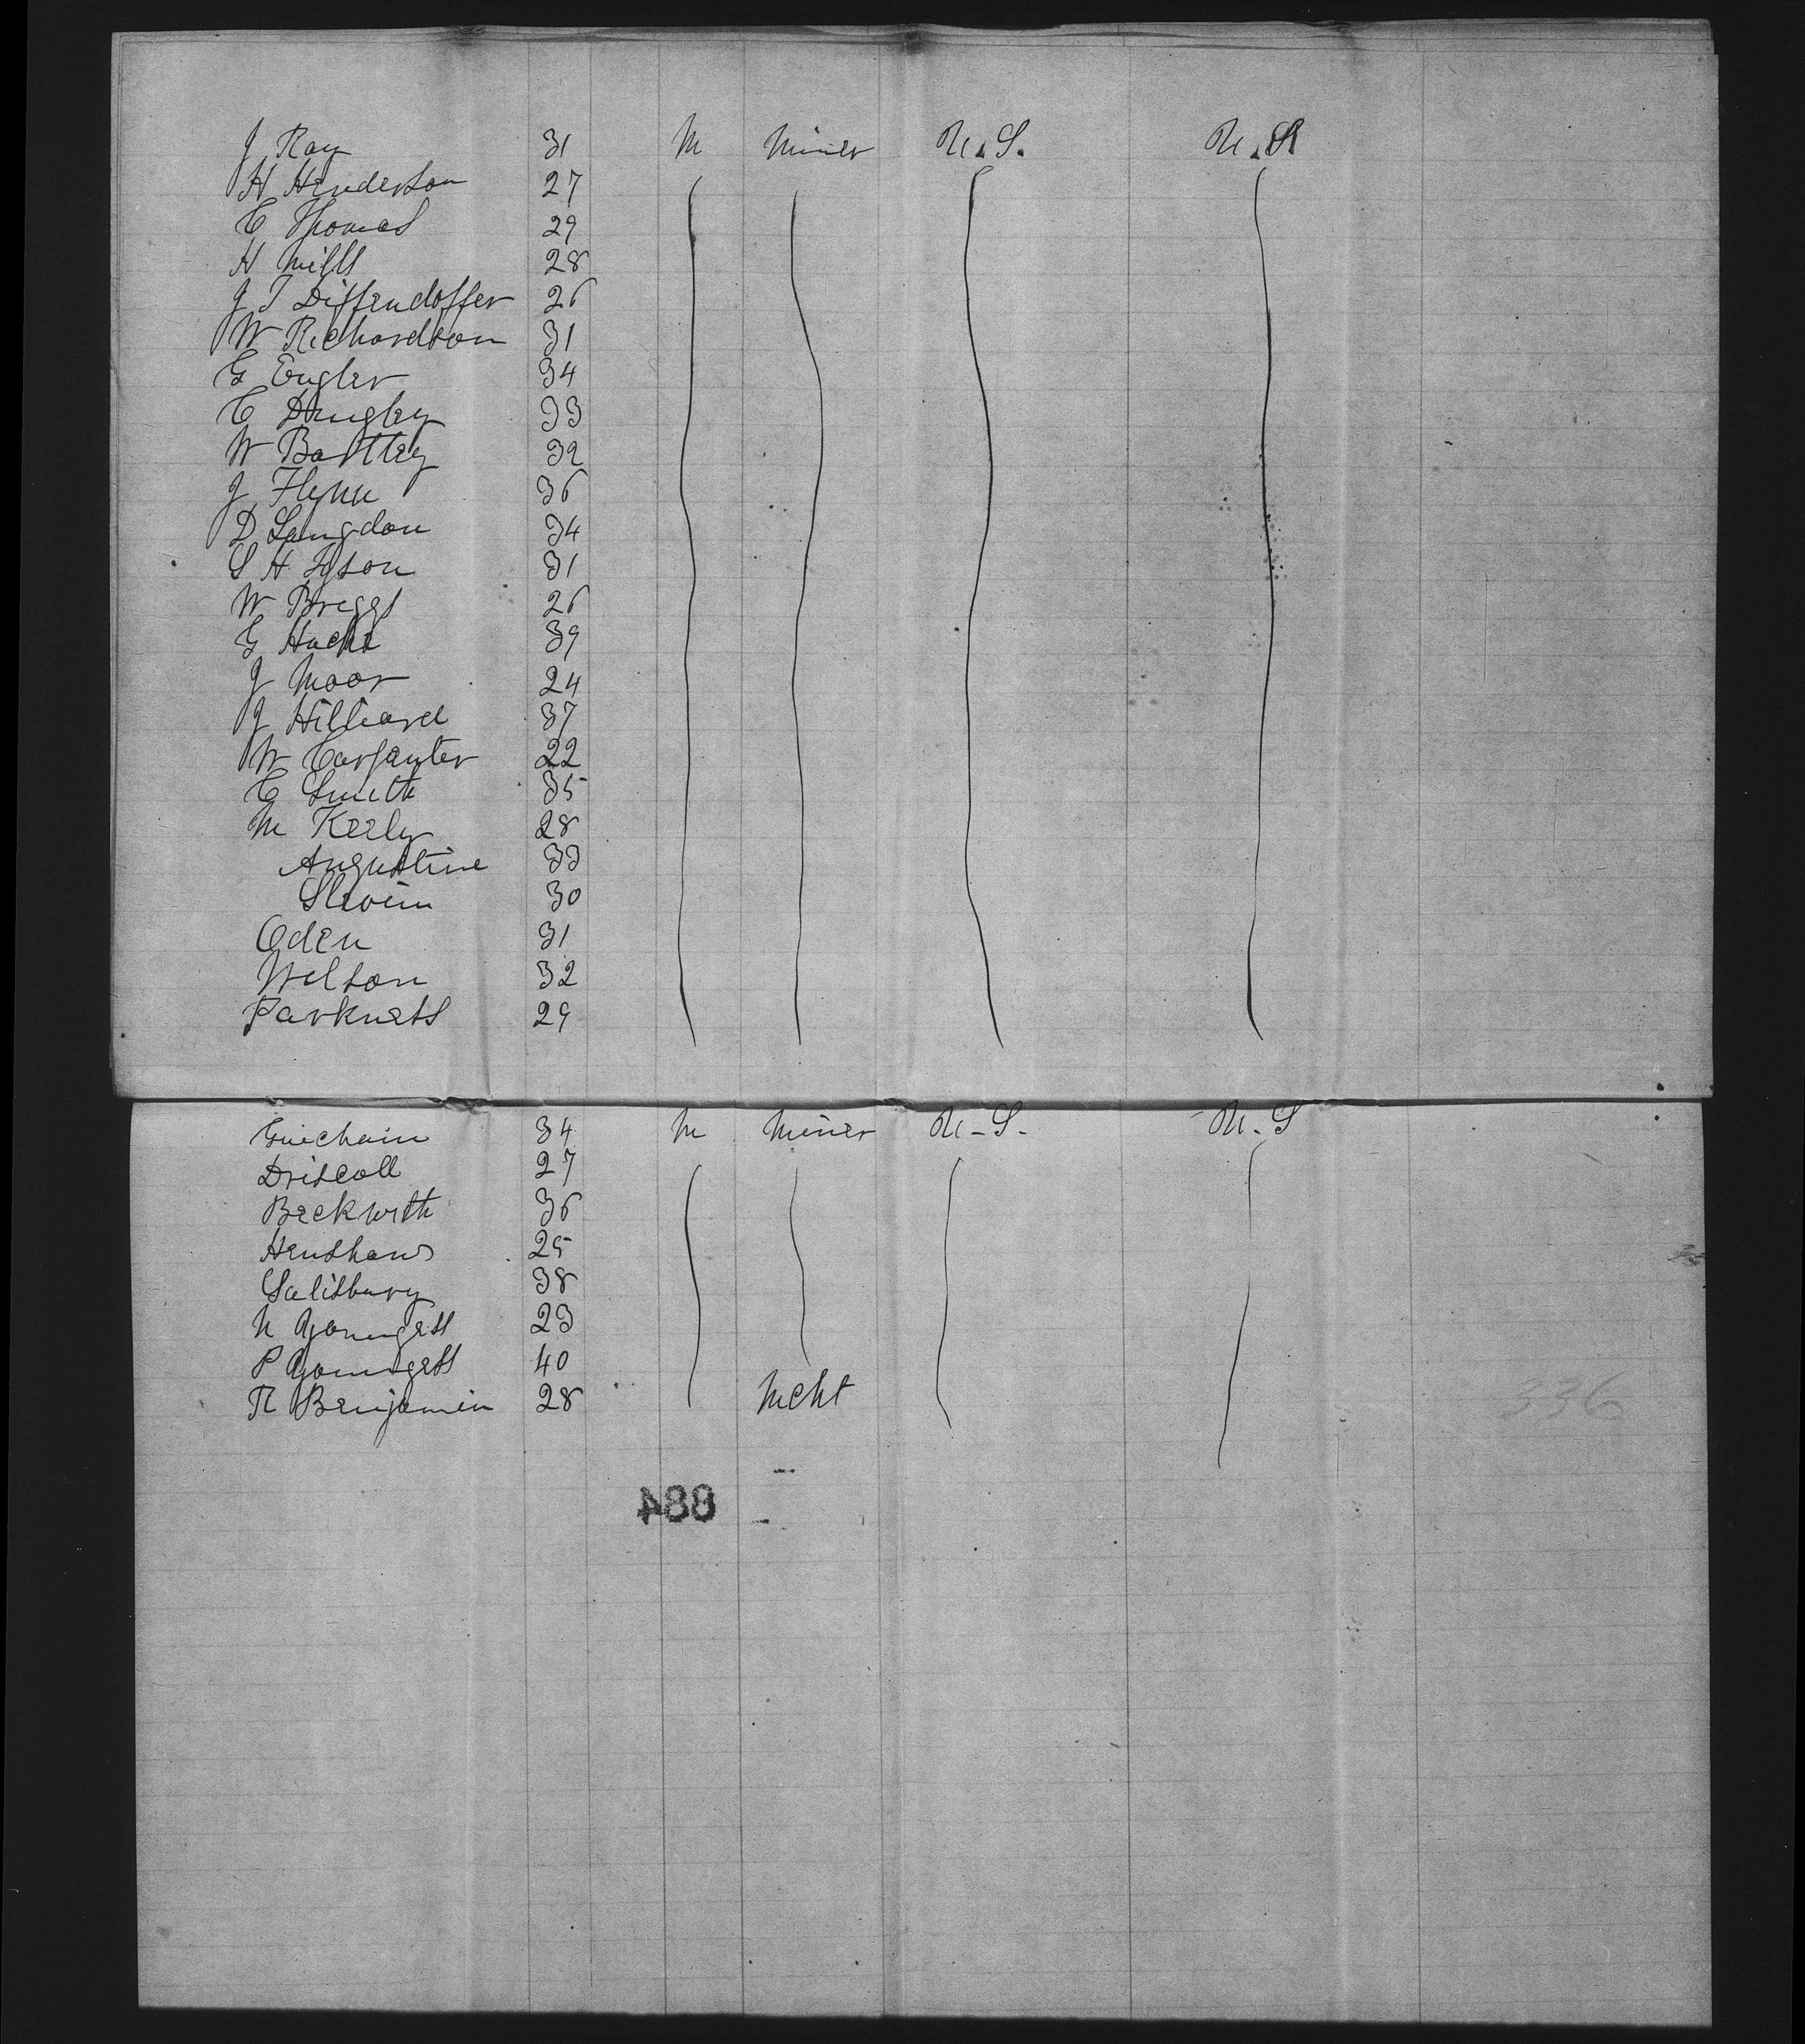 J Ray 31 M Miner U.S. U.S
H Henderson 27
C Thomas 29
H Mills 28
J T Diffendoffer 26
W Richardson 31
G Engler 34
C Dingley 33
W Bartley 32
J Flynn 36
D Langdon 34
S H Tyson 31
W Briggs 26
G Hucke 39
J Moor 24
J Hilliard 37
W Carpenter 22
C Smith 35
M Keely 28
Augustine 33
Slavin 30
Oden 31
Wilson 32
Parkness 29
Guichain 34 M Miner U-S- U-S
Driscoll 27
Beckwith 36
Henshaw 25
Salisbury 38
N Youngess 23
P Youngess 40
R Benjamin 28 Mcht
336
884